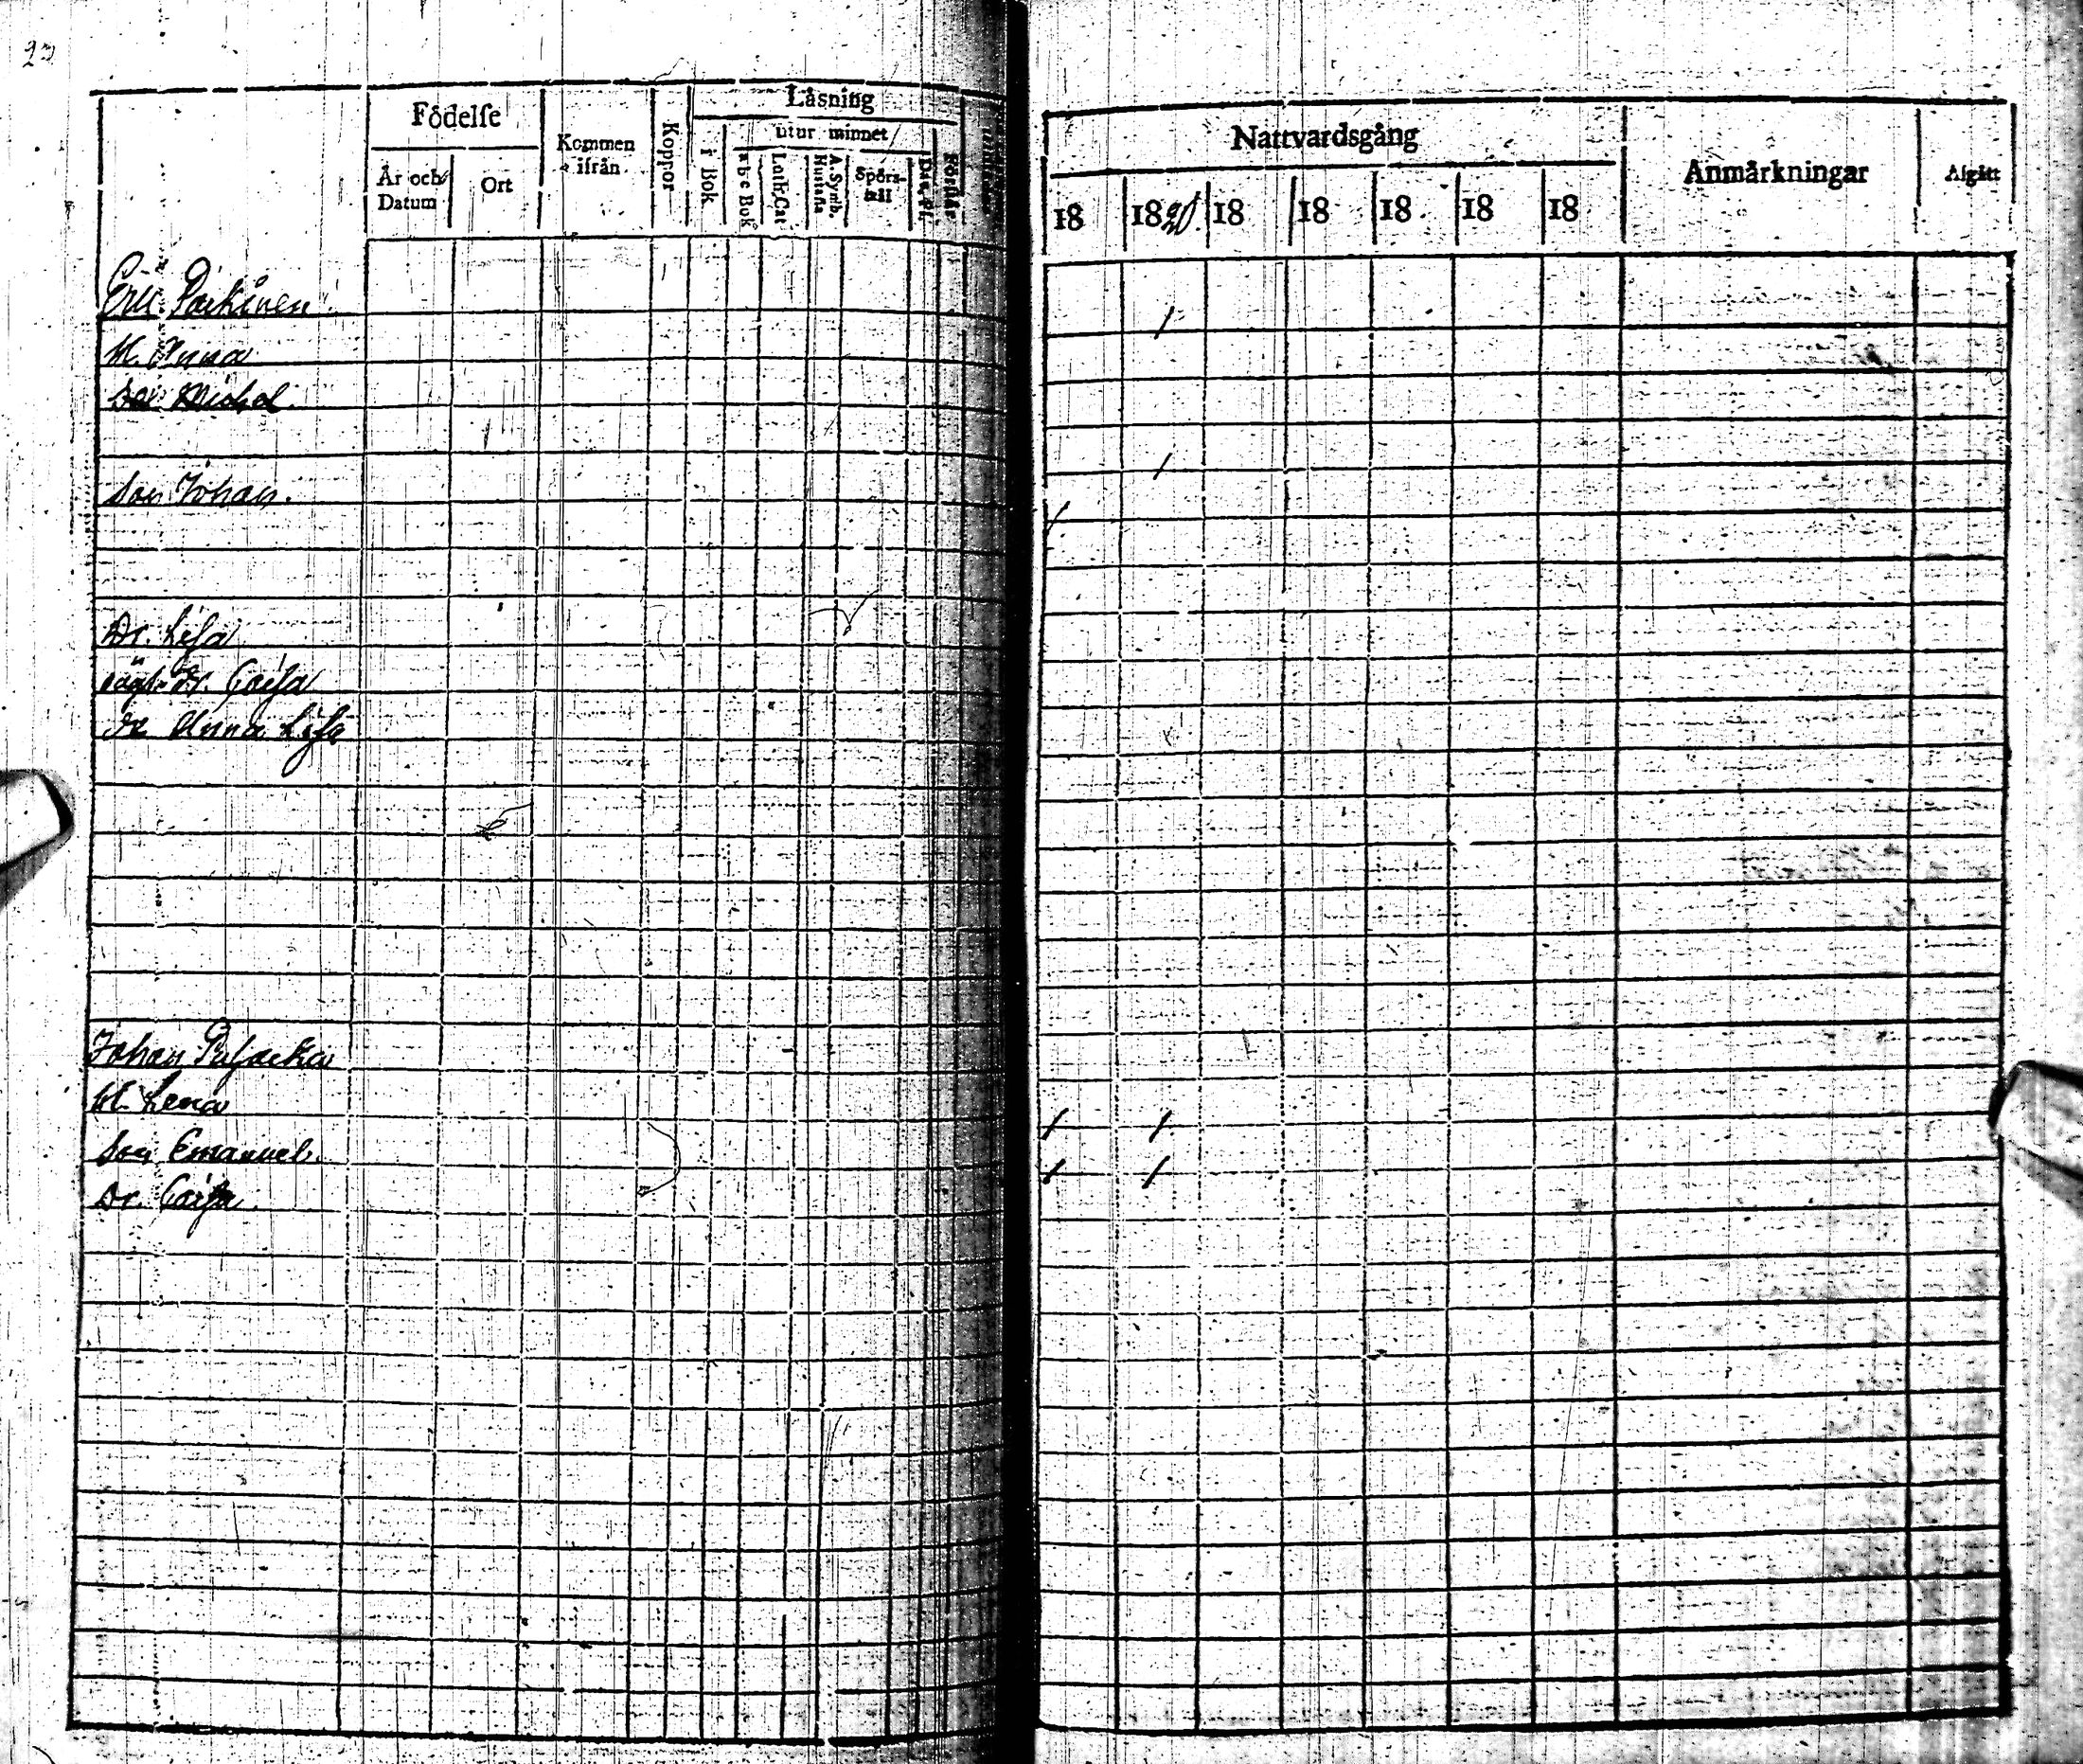 Födelse
Läsning
Kommen ifrån
Koppor
utur minnet
År och Datum
Ort
i Bok
a b c Bok
Luth. Cat
A. Symb.
Hustafla
Spörsmål
Förstår
Nattvardsgång
Anmärkningar
Afgått
18 1820. 18 18 18 18 18
Eric Parkinen
H. Anna
Son Michel
1
Son Johan.
Dr. Lisa
Dr. Caisa
Dr Anna Lisa
Johan
H. Lena
Son Emanuel.
Dr. Caisa